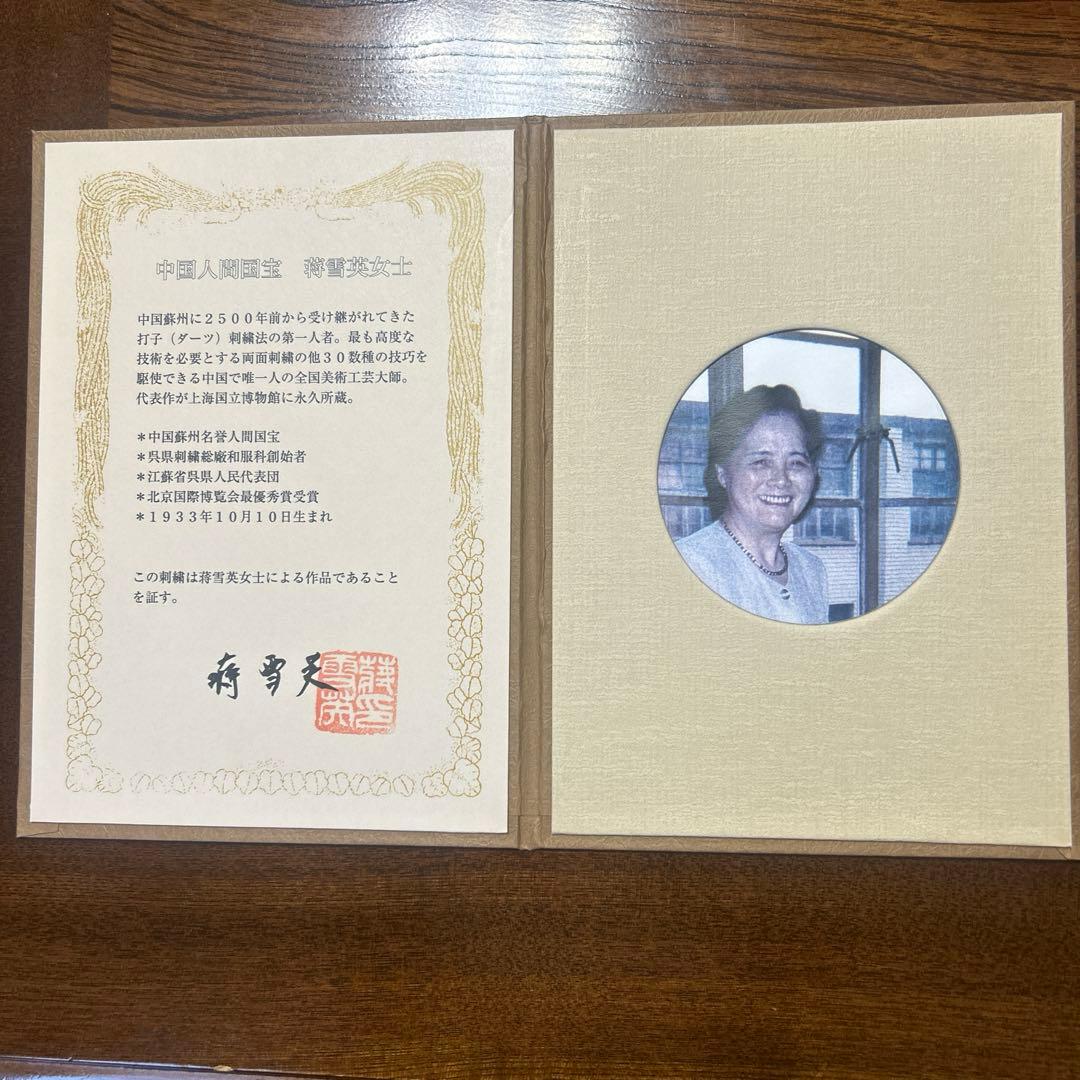 中国人間国宝　蒋雪英女士
中国蘇州に２５００年前から受け継がれてきた
打子（ダーツ）刺繍法の第一人者。最も高度な
技術を必要とする両面刺繍の他３０数種の技巧を
駆使できる中国で唯一人の全国美術工芸大師。
代表作が上海国立博物館に永久所蔵。
＊中国蘇州名誉人間国宝
＊呉県刺繍総廠和服科創始者
＊江蘇省呉県人民代表団
＊北京国際博覧会最優秀賞受賞
＊１９３３年１０月１０日生まれ
この刺繍は蒋雪英女士による作品であること
を証す。
蒋雪英